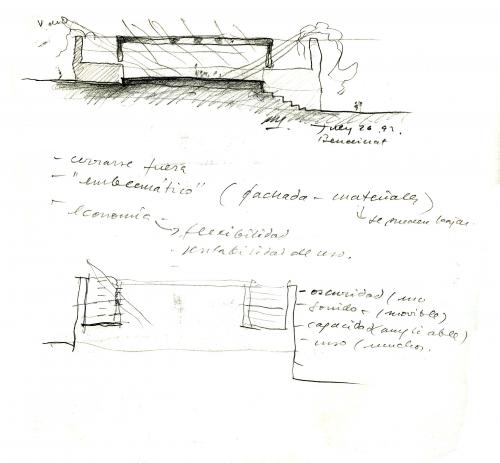 July 26. 92.
Bendinat
- cerrarse fuera
- "emblemático" (fachada - materiales)
se pueden
- economía - flexibilidad
- rentabilidad de uso.
- oscuridad (
- sonido - (movible)
- capacidad (ampliable)
- uso (muchos.